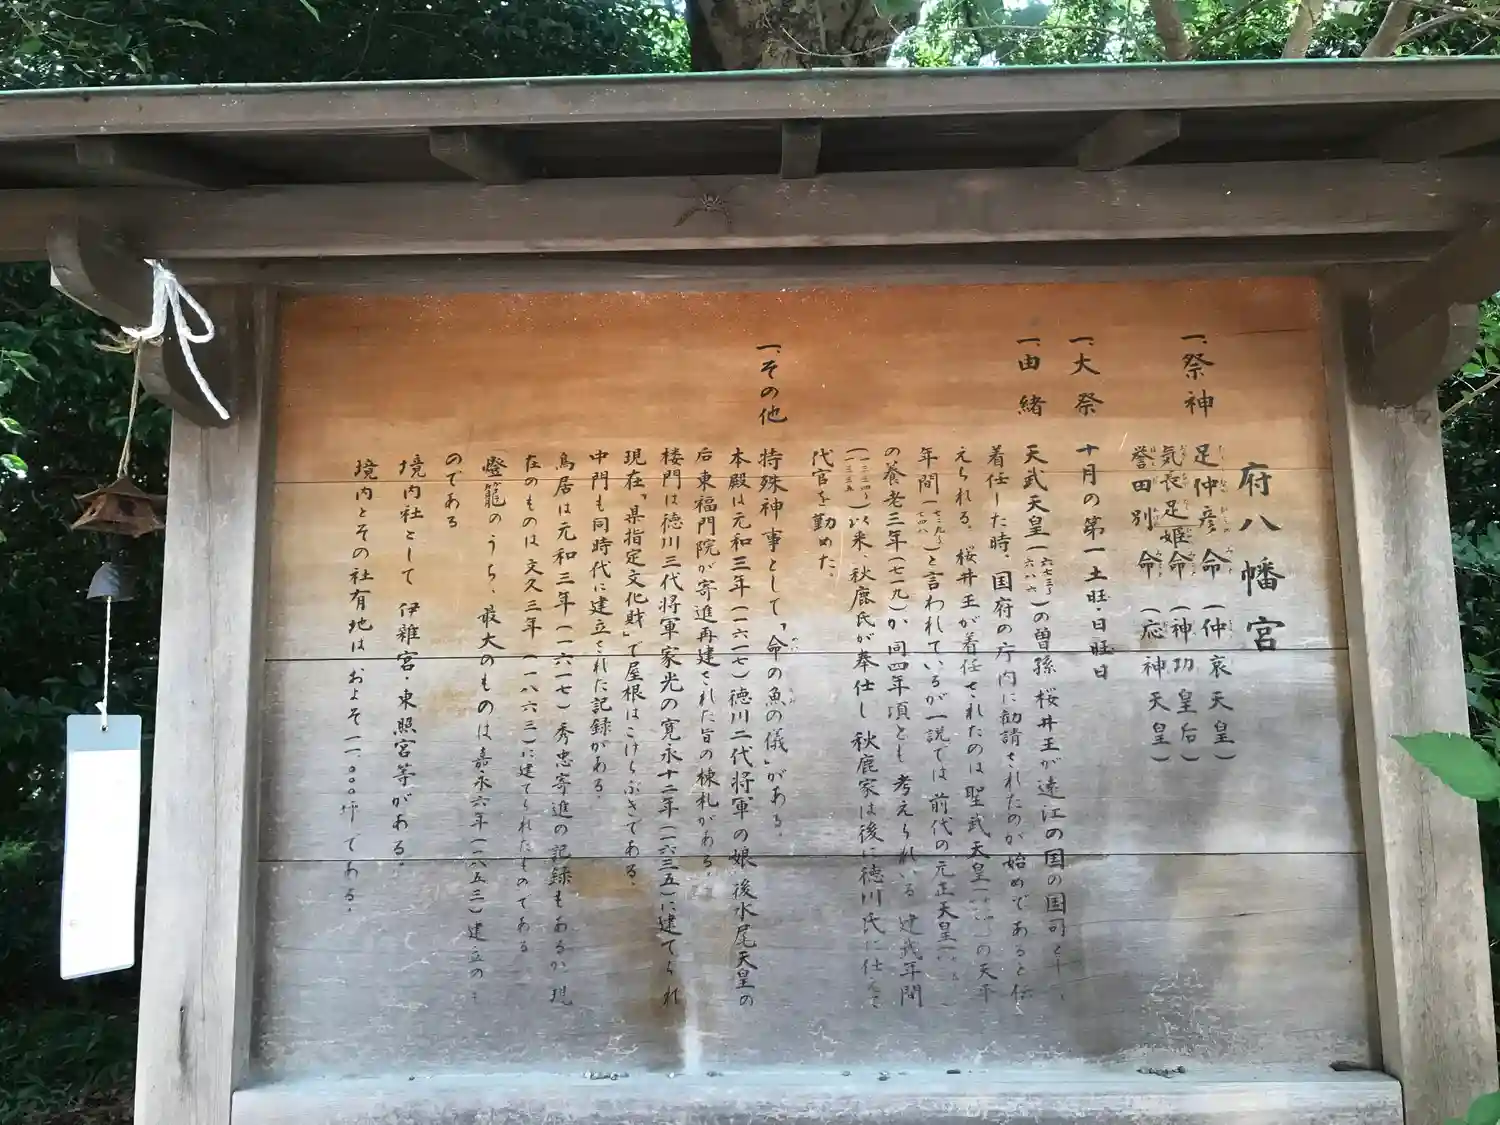 府八幡宮
一、祭神 足仲彦命(仲哀天皇)
気長足姫命(神功皇后)
誉田別命(応神天皇)
一、大祭 十月の第一土旺・日旺日
一、由緒 天武天皇(六七三〜六八六)の曽孫桜井王が遠江の国の国司として
着任した時、国府の庁内に勧請されたのが始めであると伝
えられる。桜井王が着任されたのは聖武天皇の天平
年間(七二九〜七四八)と言われているが一説では前代の元正天皇
の養老三年(七一九)か同四年頃とも考えられいる 建武年間
(一三三四〜一三三五)以来、秋鹿氏が奉仕し秋鹿家は後に徳川氏に仕えて
代官を勤めた。
一、その他 特殊神事として、「命の魚の儀」がある。
本殿は元和三年(一六一七)徳川二代将軍の娘 後水尾天皇の
后東福門院が寄進再建された旨の棟札がある。
楼門は徳川三代将軍家光の寛永十二年(一六三五)に建てられ
現在「県指定文化財」で屋根はこけらぶきである。
中門も同時代に建立された記録がある。
鳥居は元和三年(一六一七)秀忠寄進の記録もあるが現
在のものは文久三年(一八六三)に建てられたものである
燈籠のうち、最大のものは嘉永六年(一八五三)建立のも
のである
境内社として 伊雑宮・東照宮等がある。
境内とその社有地は およそ一一、〇〇〇坪である。